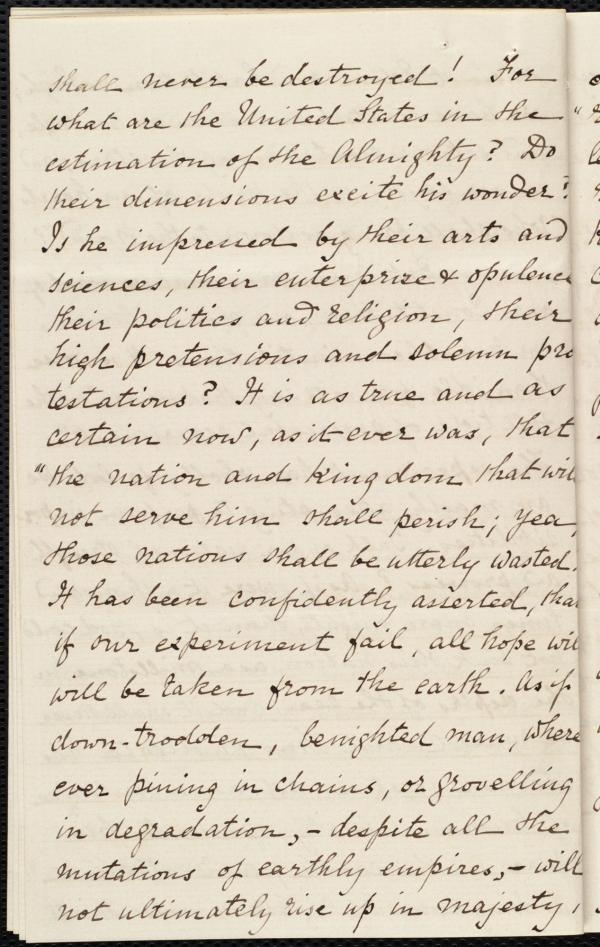 shall never be destroyed! For
what are the United States in the
estimation of the Almighty? Do
their dimensions excite his wonder?
Is he impressed by their arts and
sciences, their enterprize & opulence
their politics and religion, their
high pretensions and solemn pro
testations? It is as true and as
certain now, as it ever was, that
"the nation and kingdom that will
not serve him shall perish; yea,
those nations shall be utterly wasted.
It has been confidently asserted, that
if our experiment fail, all hope will
will be taken from the earth. As if
down-trodden, benighted man, where
ever pining in chains, or grovelling
in degradation, - despite all the
mutations of earthly empires, - will
not ultimately rise up in majesty,